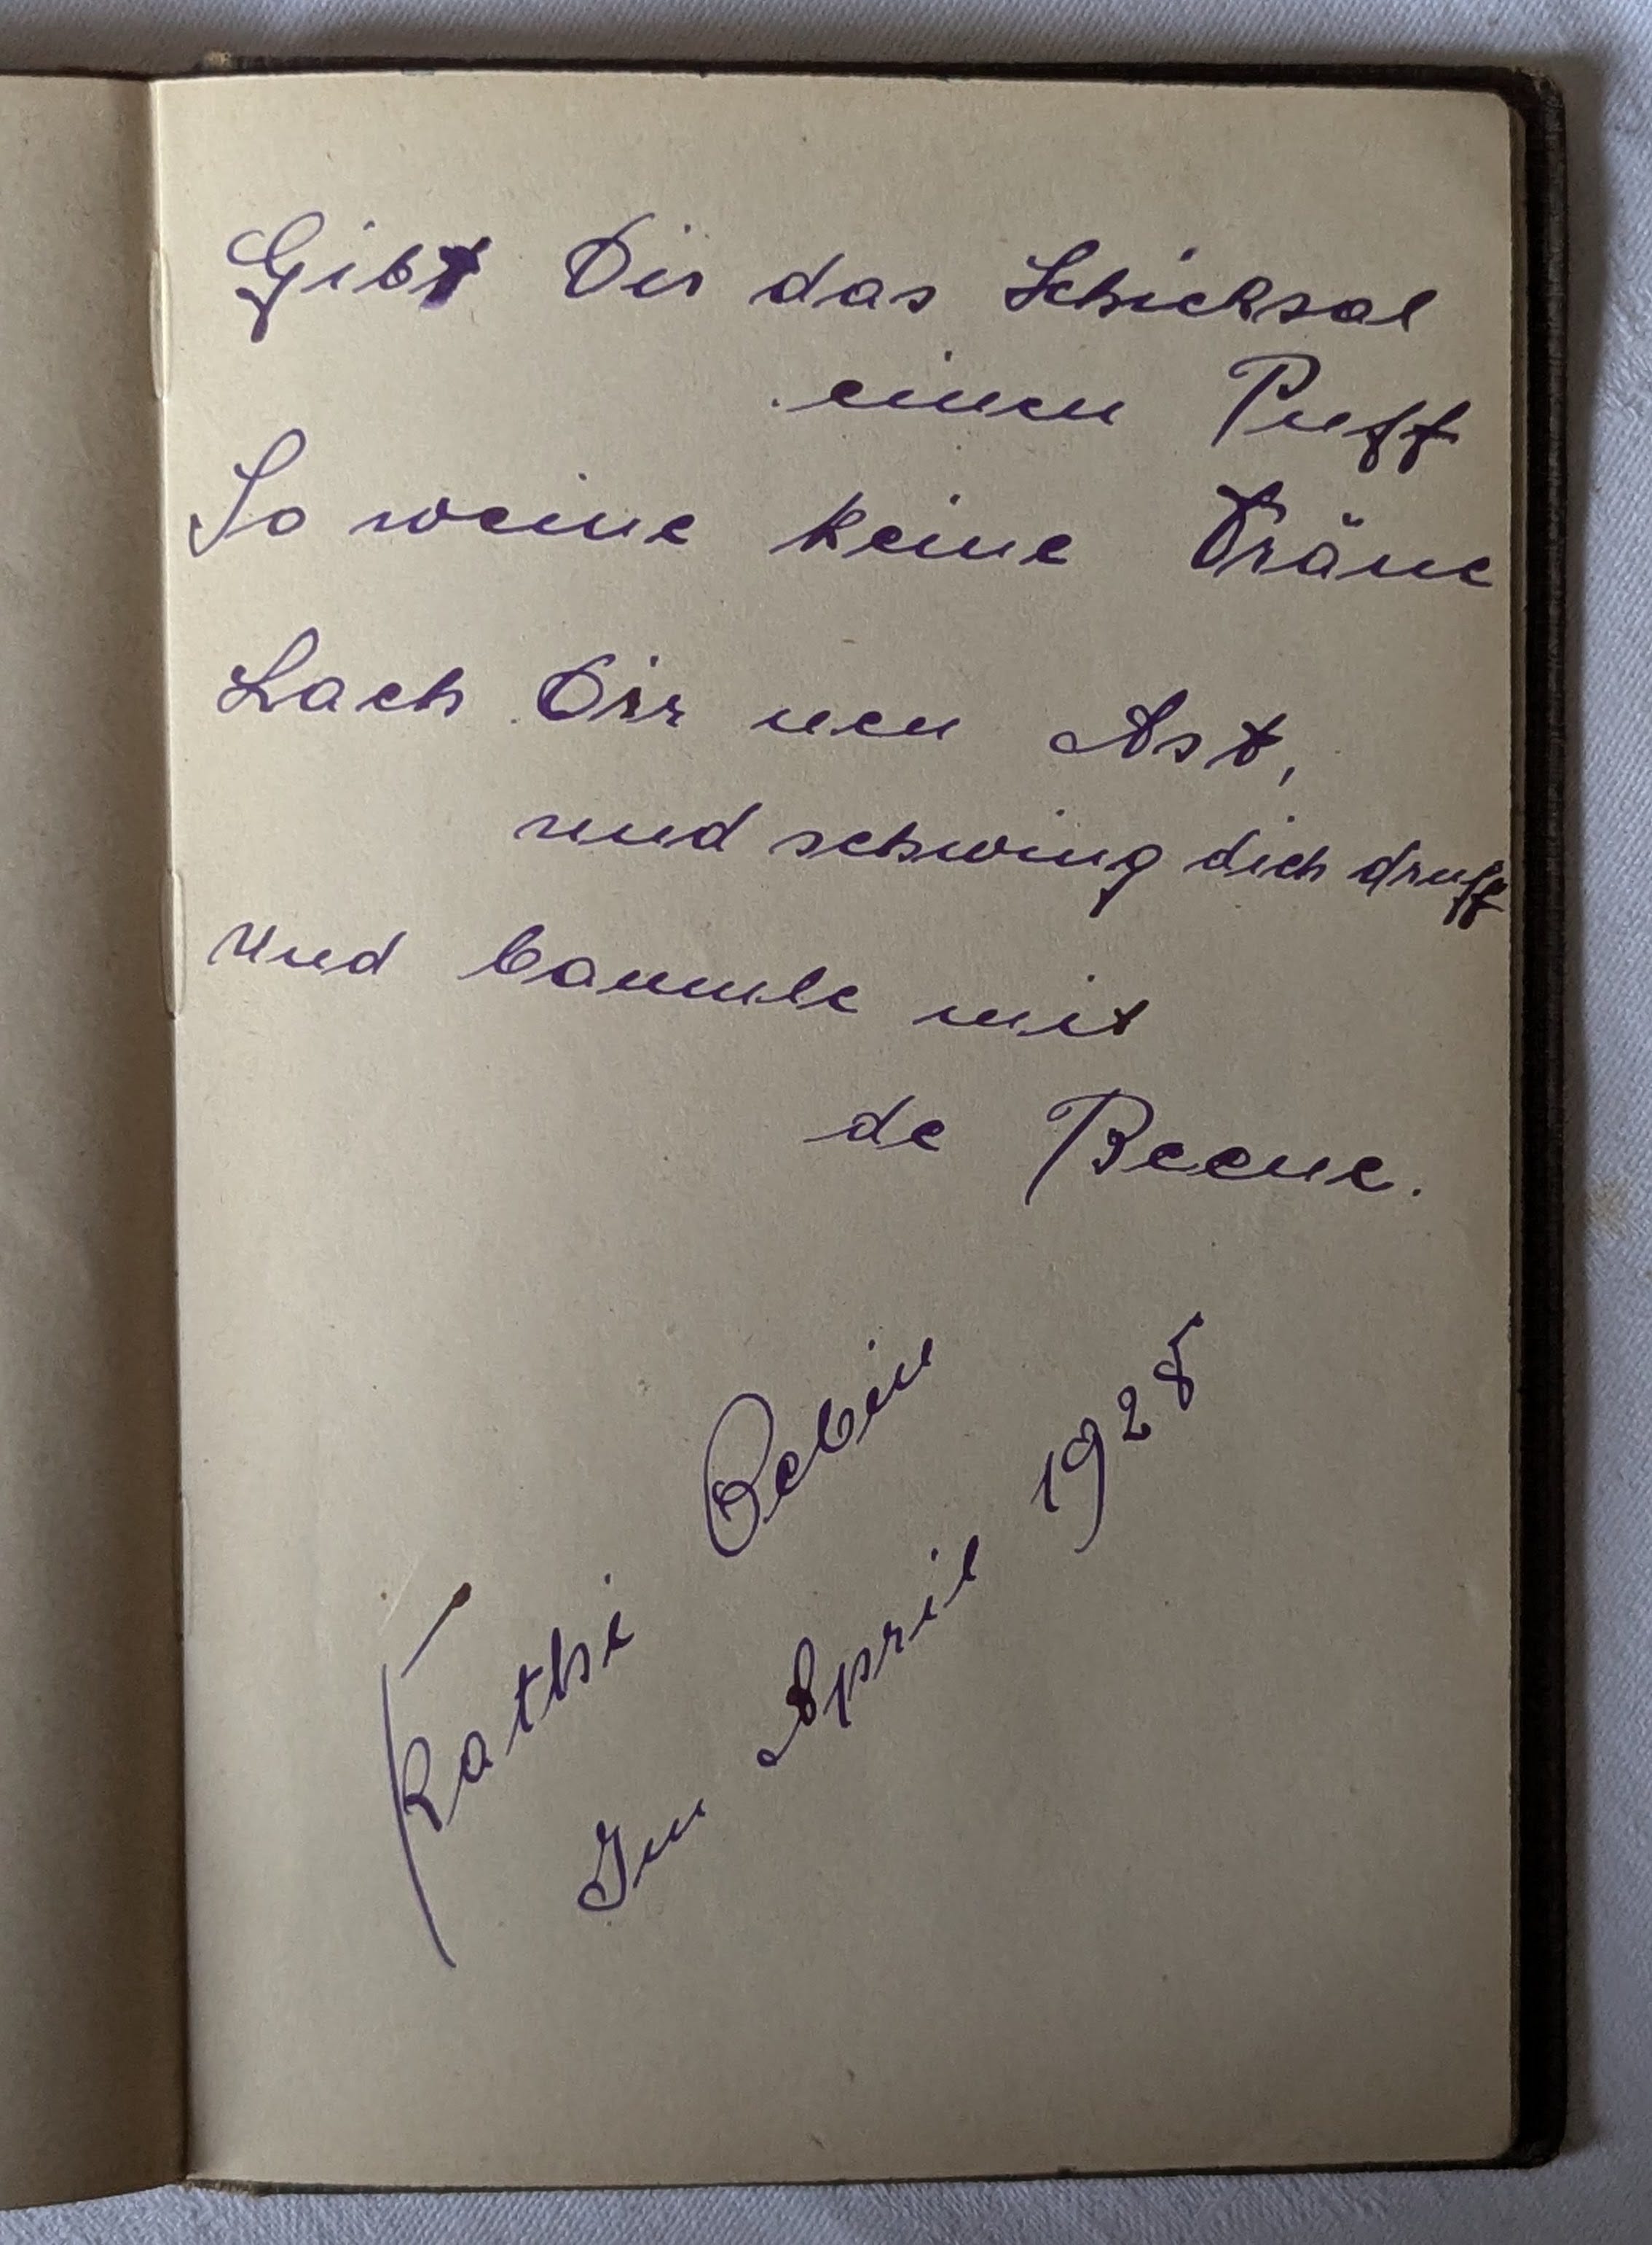 Gibt Dir das Schicksal
einen Puff
So weine keine Träne
Lach Dir nen Ast,
und schwing dich druff
und baumle mit
de Beene.
Kathi
Im April 1928